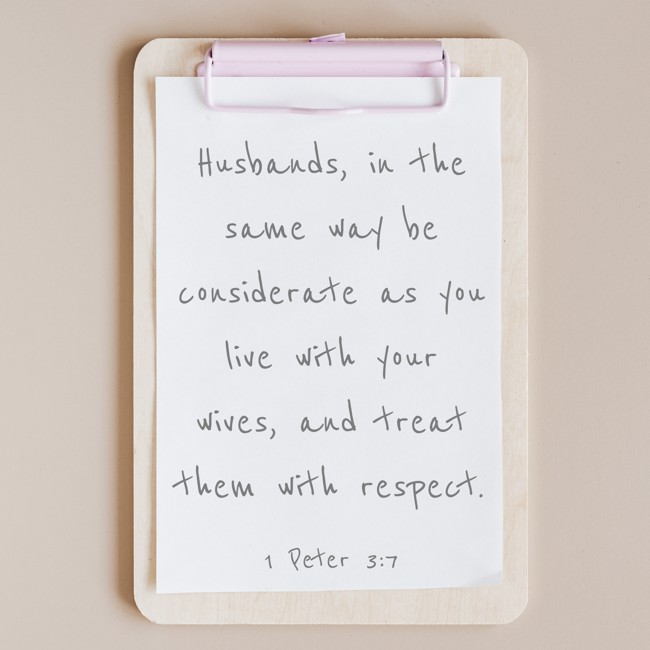 Husbands, in the
same way be
considerate as you
live with your
wives, and treat
them with respect.
1 Peter 3:7